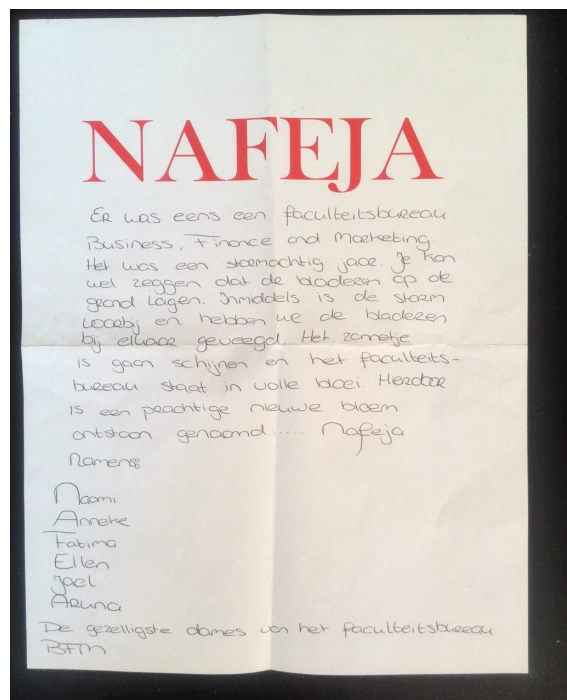 NAFEJA
Er was eens een faculteitsbureau
Business, Finance and Marketing.
Het was een stormachtig jaar. Je kon
wel zeggen dat de bladeren op de
grond lagen. Inmiddels is de storm
voorbij en hebben we de bladeren
bij elkaar geveegd. Het zonnetje
is gaan schijnen en het faculteits-
bureau staat in volle bloei. Hierdoor
is een prachtige nieuwe bloem
ontstaan genaamd ..... Nafeja
Namens
Naomi
Anneke
Fatima
Ellen
Joel
Aruna
De gezelligste dames van het faculteitsbureau
BFM